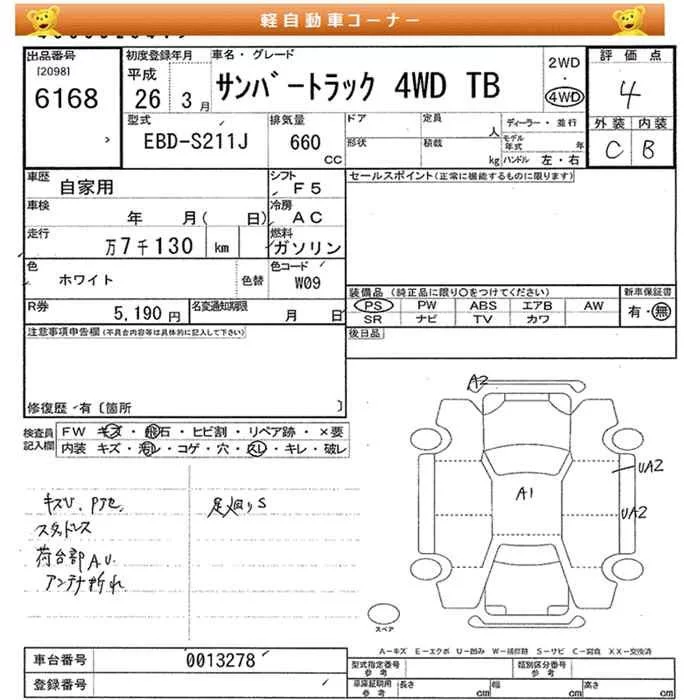 軽自動車コーナー
出品番号 初度登録年月 車名・グレード 評価点
[2098] 平成 サンバートラック 4WD TB 2WD・4WD 4
6168 26 3月
型式 排気量 ドア 定員 人 ディーラー・並行 外装 内装
EBD-S211J 660 CC 形状 積載 kg モデル年式 年 C B
ハンドル 左・右
車歴 自家用 シフト F5 セールスポイント(正常に機能するものに限ります)
車検 年 月( 日) 冷房 AC
走行 万7千130 km 燃料 ガソリン
色 ホワイト 色替 色コード W09
装備品 (純正品に限り○をつけてください) 新車保証書
R券 5,190円 名変通知期限 月 日 PS PW ABS エアB AW 有・無
SR ナビ TV カワ
注意事項申告欄(不具合内容等は具体的に記入して下さい) 後日品
修復歴・有〔箇所 〕
検査員記入欄 FW キズ・飛石・ヒビ割・リペア跡・×要
内装 キズ・汚レ・コゲ・穴・スレ・キレ・破レ
A2
A1
UA2
UA2
キズU.
足廻りS
スタッドレス
荷台部A.U.
アンテナ折れ
スペア
A-キズ E-エクボ U-凹み W-補修跡 S-サビ C-腐食 XX-交換済
車台番号 0013278 型式指定番号 参考 類別区分番号 参考
登録番号 車庫証明用 参考 長さ cm 幅 cm 高さ cm